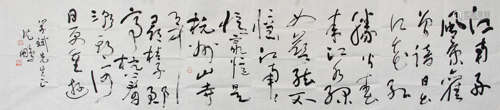 江南好
風景舊
曾諳日出
江花紅
勝火春
來江水綠
如藍能不
憶江南江南
憶最憶是
杭州山寺
月中
尋桂子郡
亭枕上看
潮頭何
日更重遊
先生正
沈鵬